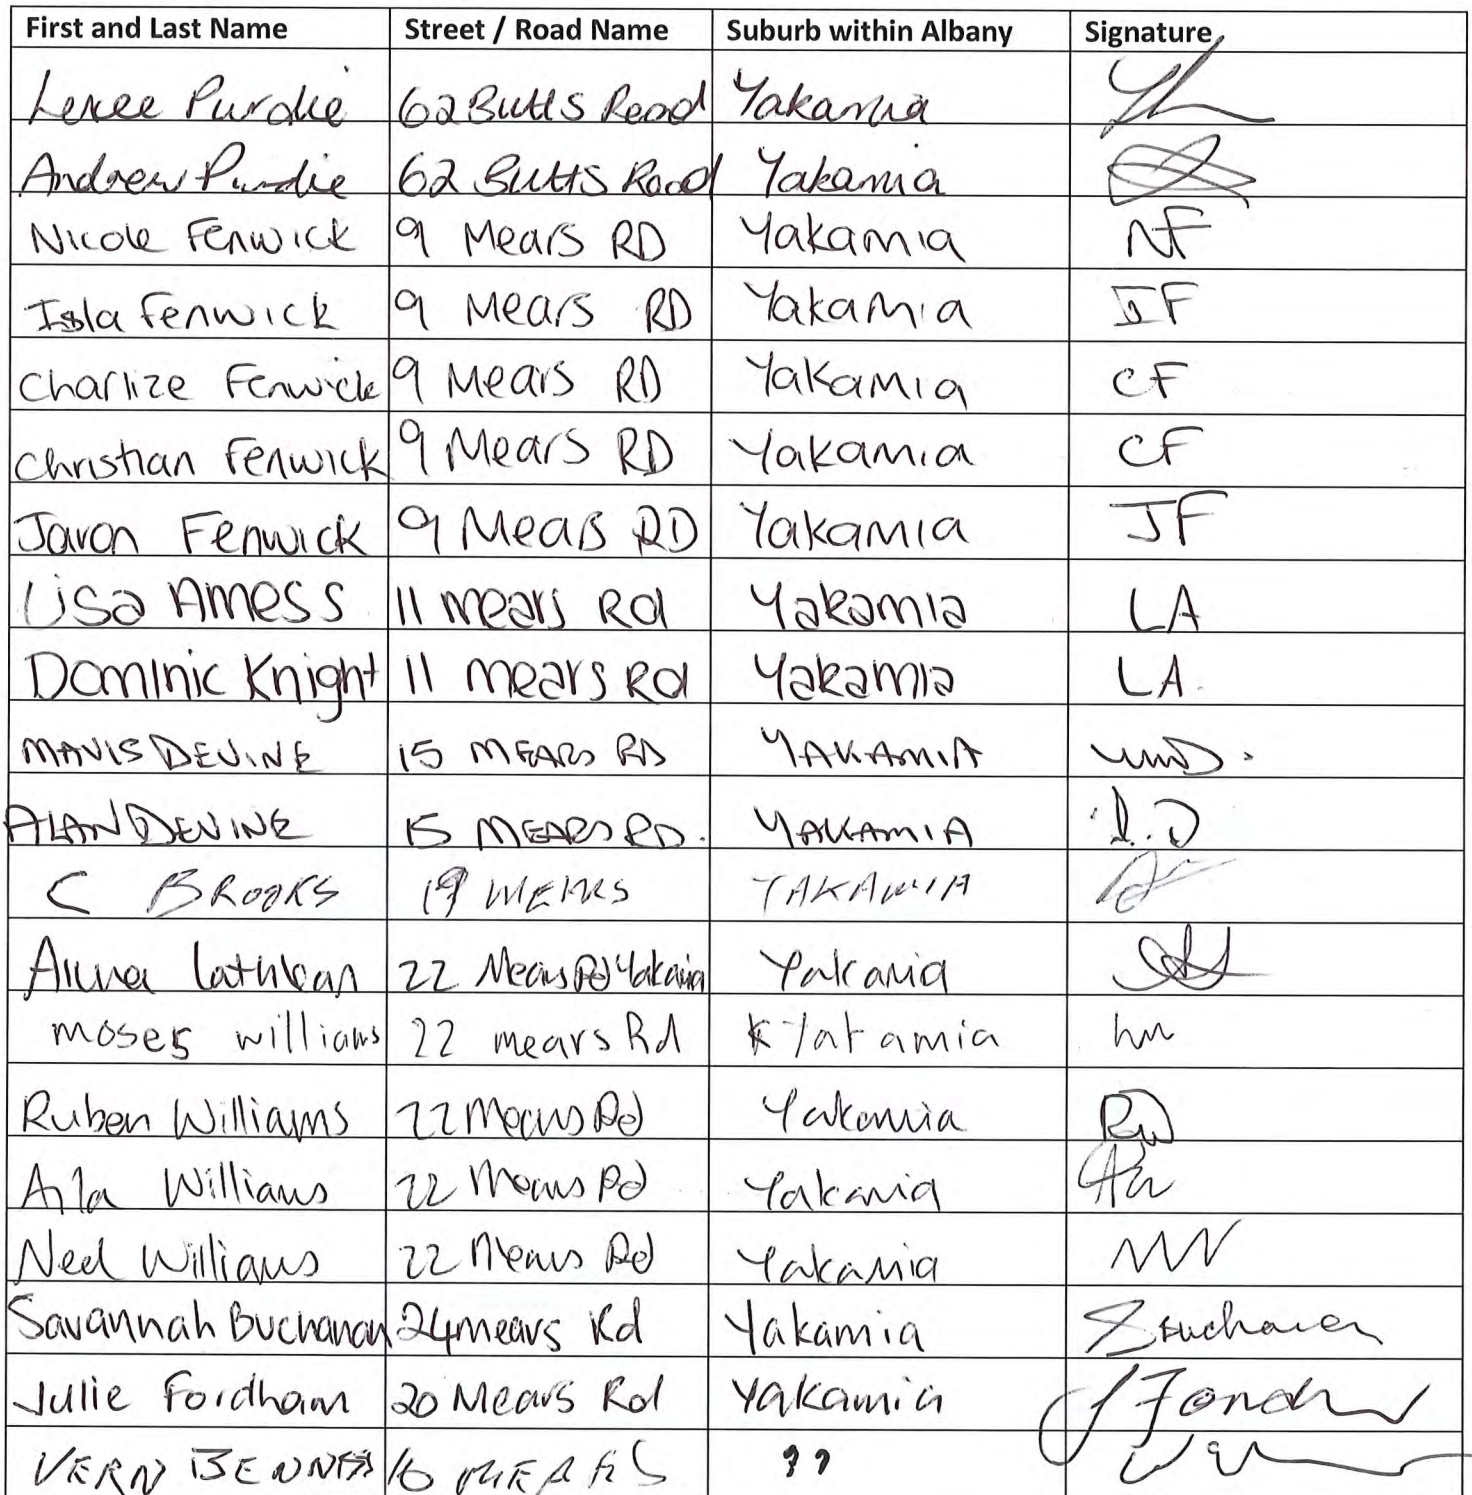 First and Last Name Street / Road Name Suburb within Albany Signature
Purdie 62 Butts Road Yakamia
Andrew Purdie 62 Butts Road Yakamia
Nicole Fenwick 9 Mears RD Yakamia NF
Isla Fenwick 9 Mears RD Yakamia IF
Charlize Fenwick 9 Mears RD Yakamia CF
Christian Fenwick 9 Mears RD Yakamia CF
Javon Fenwick 9 Mears RD Yakamia JF
Lisa Amess 11 mears Rd Yakamia LA
Dominic Knight 11 mears Rd Yakamia LA.
MAVIS DEVINE 15 MEARS RD YAKAMIA
ALAN DEVINE 15 MEARS RD. YAKAMIA A.D
C BROOKS 19 MEARS YAKAMIA
Lathlean 22 Mears Rd Yakamia Yakamia
moses williams 22 mears Rd Yakamia
Ruben Williams 22 Mears Rd Yakamia RW
Aila Williams 22 Mears Rd Yakamia AW
Ned Williams 22 Mears Rd Yakamia NW
Savannah Buchanan 24 mears Rd Yakamia SBuchanan
Julie Fordham 20 Mears Rd Yakamia
VERN 16 MEARS ''